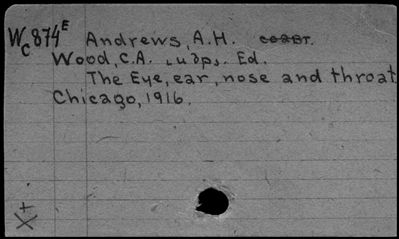 Wc874E Andrews, A.H.
Wood, C.A. Ed.
The Eye, ear, nose and throat
Chicago, 1916.